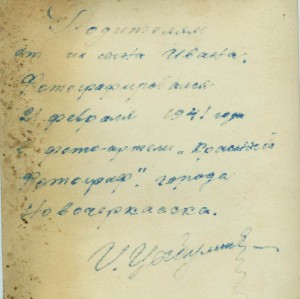 Родителям
от их сына Ивана.
Фотографировался
21 февраля 1941 года
в фото-артели „Красный
Фотограф", города
Новочеркасска.